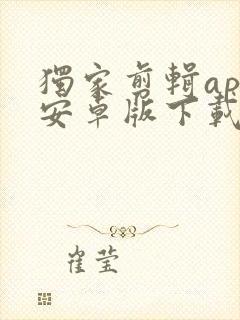 獨家剪輯ap
安卓版下載
崔莹